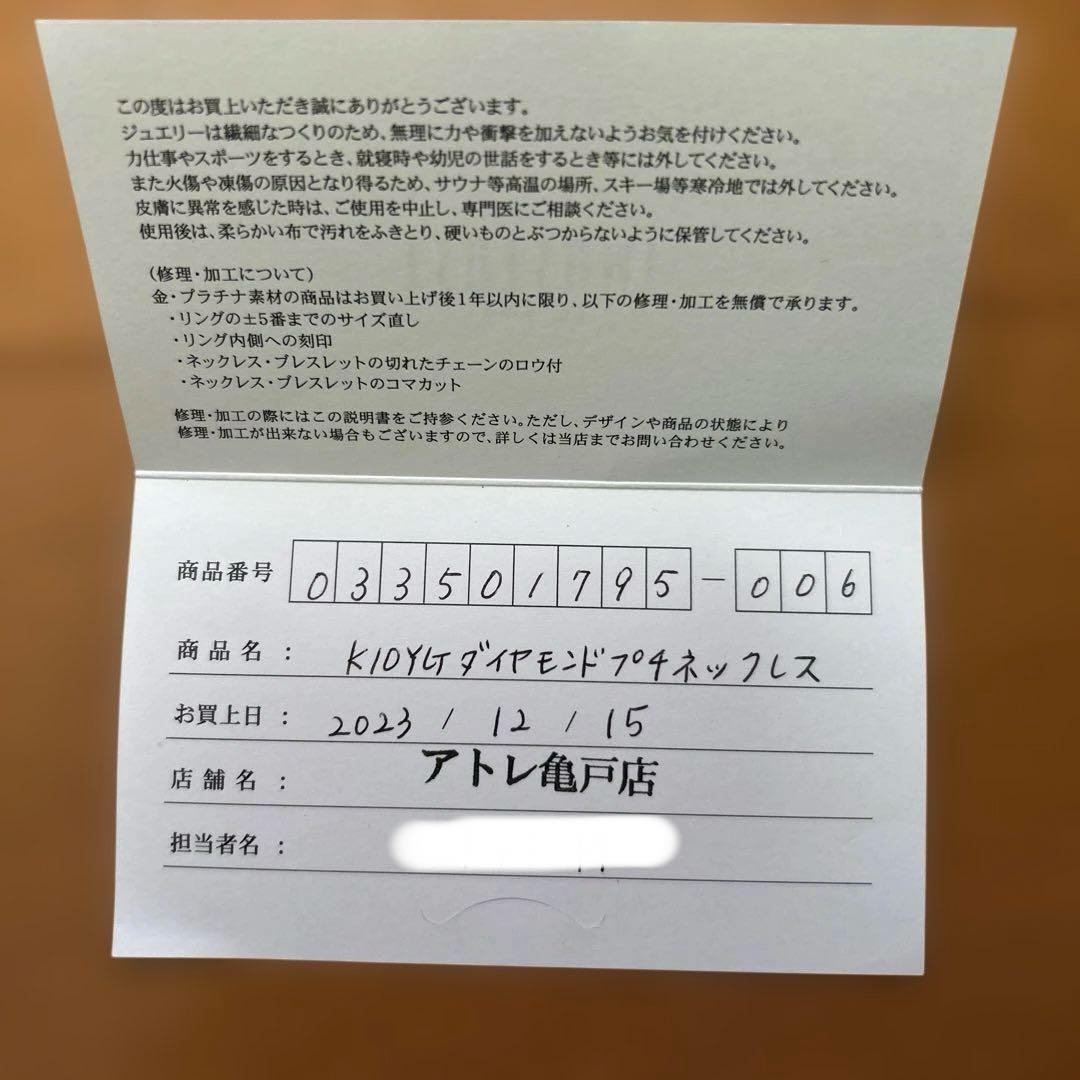 この度はお買上いただき誠にありがとうございます。
ジュエリーは繊細なつくりのため、無理に力や衝撃を加えないようお気を付けください。
力仕事やスポーツをするとき、就寝時や幼児の世話をするとき等には外してください。
また火傷や凍傷の原因となり得るため、サウナ等高温の場所、スキー場等寒冷地では外してください。
皮膚に異常を感じた時は、ご使用を中止し、専門医にご相談ください。
使用後は、柔らかい布で汚れをふきとり、硬いものとぶつからないように保管してください。
（修理・加工について）
金・プラチナ素材の商品はお買い上げ後1年以内に限り、以下の修理・加工を無償で承ります。
・リングの±5番までのサイズ直し
・リング内側への刻印
・ネックレス・ブレスレットの切れたチェーンのロウ付
・ネックレス・ブレスレットのコマカット
修理・加工の際にはこの説明書をご持参ください。ただし、デザインや商品の状態により
修理・加工が出来ない場合もございますので、詳しくは当店までお問い合わせください。
商品番号 033501795-006
商品名： K10YGダイヤモンドプチネックレス
お買上日： 2023/12/15
店舗名： アトレ亀戸店
担当者名：